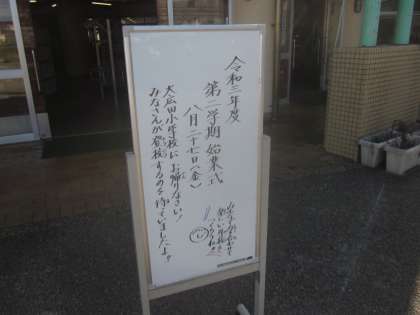 令和三年度
第二学期 始業式
八月二十七日(金)
大広田小学校にお帰りなさい!
みなさんが登校するのを待っていましたよ!